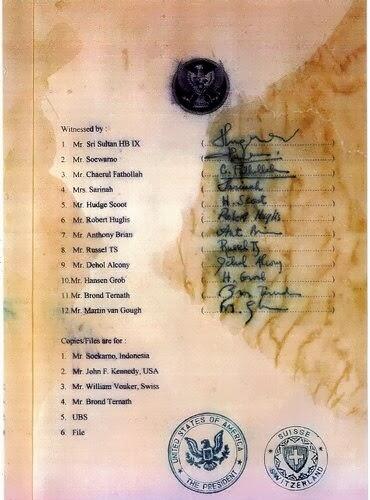 Witnessed by :
1 Mr. Sri Sultan HB IX
2 Mr. Soewarno
3 Mr. Chaerul Fathollah (C. Fathollah)
4 Mrs. Sarinah (Sarinah)
5 Mr. Hudge Scoot (H. Scoot)
6 Mr. Robert Huglis (Robert Huglis)
7 Mr. Anthony Brian
8 Mr. Russel TS (Russel TS)
9 Mr. Dehol Alcony (Dehol Alcony)
10. Mr. Hansen Grob (H. Grob)
11. Mr. Brond Ternath
12 Mr. Martin van Gough
Copies/Files are for :
1. Mr. Soekarno, Indonesia
2. Mr. John F. Kennedy, USA
3. Mr. William Vouker, Swiss
4. Mr. Brond Ternath
5. UBS
6. File
UNITED STATES OF AMERICA
THE PRESIDENT
SUISSE
SWITZERLAND